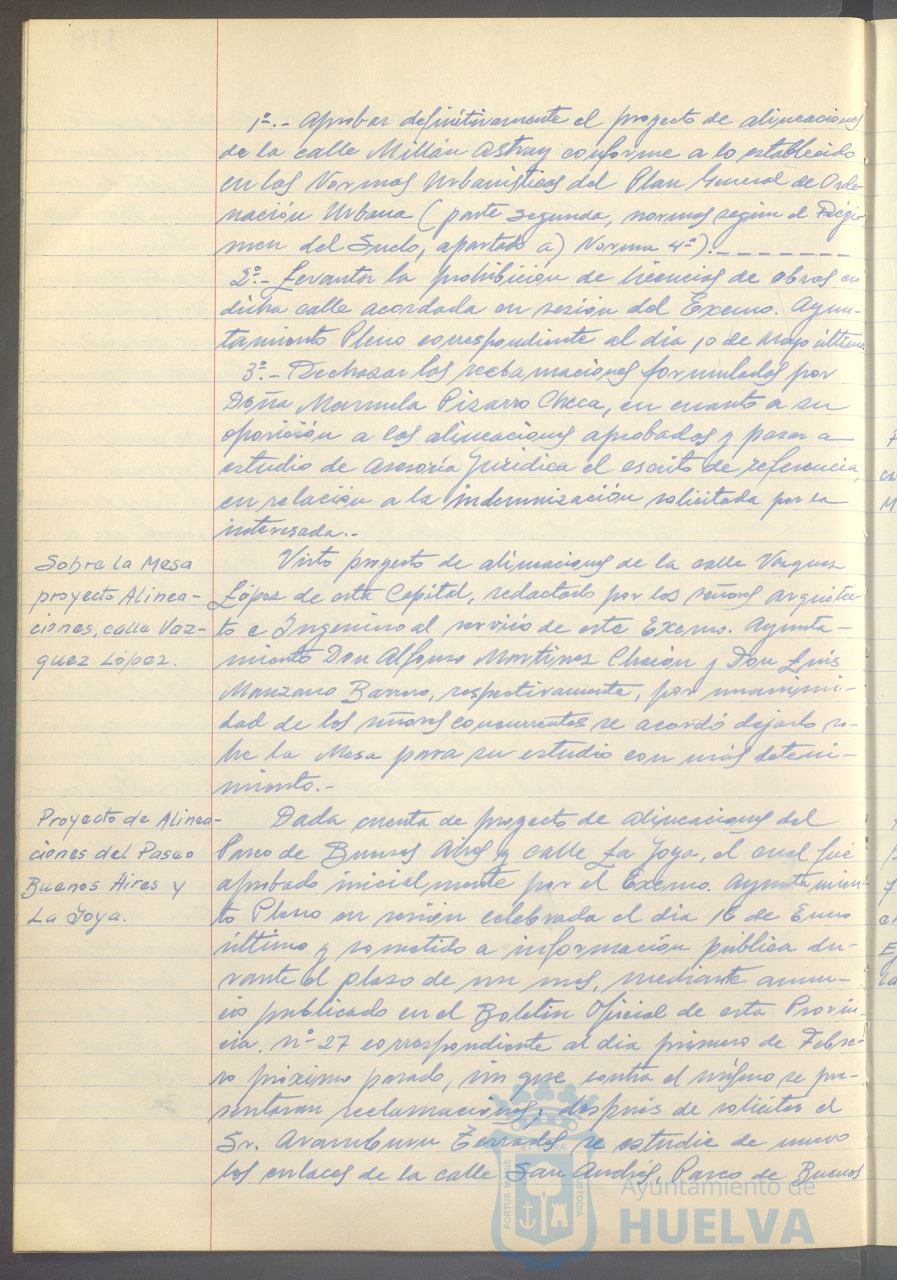 1º.- Aprobar definitivamente el proyecto de alineaciones
de la calle Millán Astray conforme a lo establecido
en las Normas Urbanísticas del Plan General de Orde-
nación Urbana (parte segunda, normas según el Régi-
men del Suelo, apartado a) Norma 4ª).- - - - - - - -
2º.- Levantar la prohibición de licencias de obras en
dicha calle acordada en sesión del Excmo. Ayun-
tamiento Pleno correspondiente al día 10 de mayo último.
3º.- Rechazar las reclamaciones formuladas por
Doña Manuela Pizarro Checa, en cuanto a su
oposición a las alineaciones aprobadas y pasar a
estudio de Asesoría Jurídica el escrito de referencia,
en relación a la indemnización solicitada por la
interesada.-
Sobre la Mesa
proyecto Alinea-
ciones, calle Vaz-
quez López.
Visto proyecto de alineaciones de la calle Vazquez
López de esta Capital, redactado por los señores arquitec-
to e Ingeniero al servicio de este Excmo. Ayunta-
miento Don Alfonso Martínez Chacón y Don Luis
Manzano Barrero, respectivamente, por unanimi-
dad de los señores concurrentes se acordó dejarlo so-
bre la Mesa para su estudio con más deteni-
miento.-
Proyecto de Alinea-
ciones del Paseo
Buenos Aires y
La Joya.
Dada cuenta de proyecto de alineaciones del
Paseo de Buenos Aires y calle La Joya, el cual fué
aprobado inicialmente por el Excmo. Ayuntamien-
to Pleno en sesión celebrada el día 16 de Enero
último y sometido a información pública du-
rante el plazo de un mes, mediante anun-
cio publicado en el Boletín Oficial de esta Provin-
cia. nº 27 correspondiente al día primero de Febre-
ro próximo pasado, sin que contra el mismo se pre-
sentaran reclamaciones; después de solicitar el
Sr. Aramburu Terrades se estudie de nuevo
los enlaces de la calle San Andrés, Paseo de Buenos
PORTUS MARIS
ET TERRAE
CUSTODIA
Ayuntamiento de
HUELVA